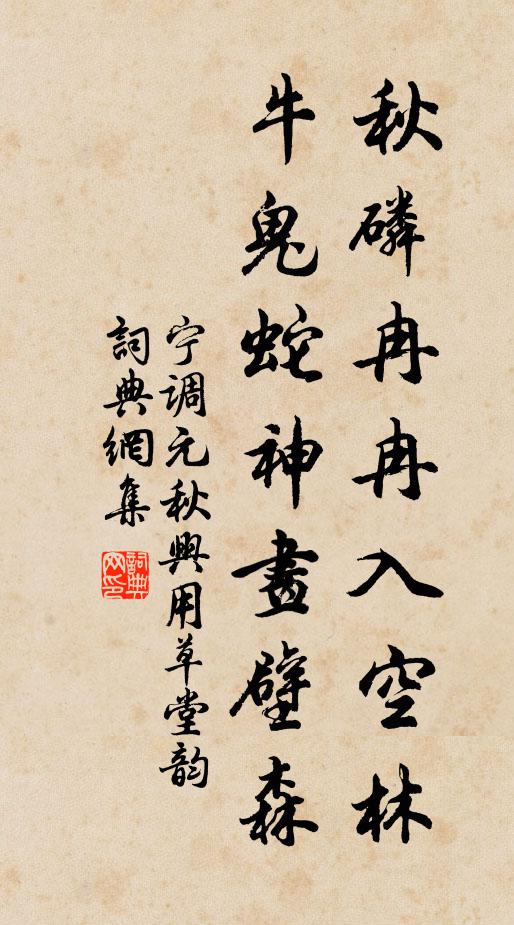 秋磷冉冉入空林
牛鬼蛇神畫壁森
宁調元秋興用草堂韵
詞典網集
詞典网印